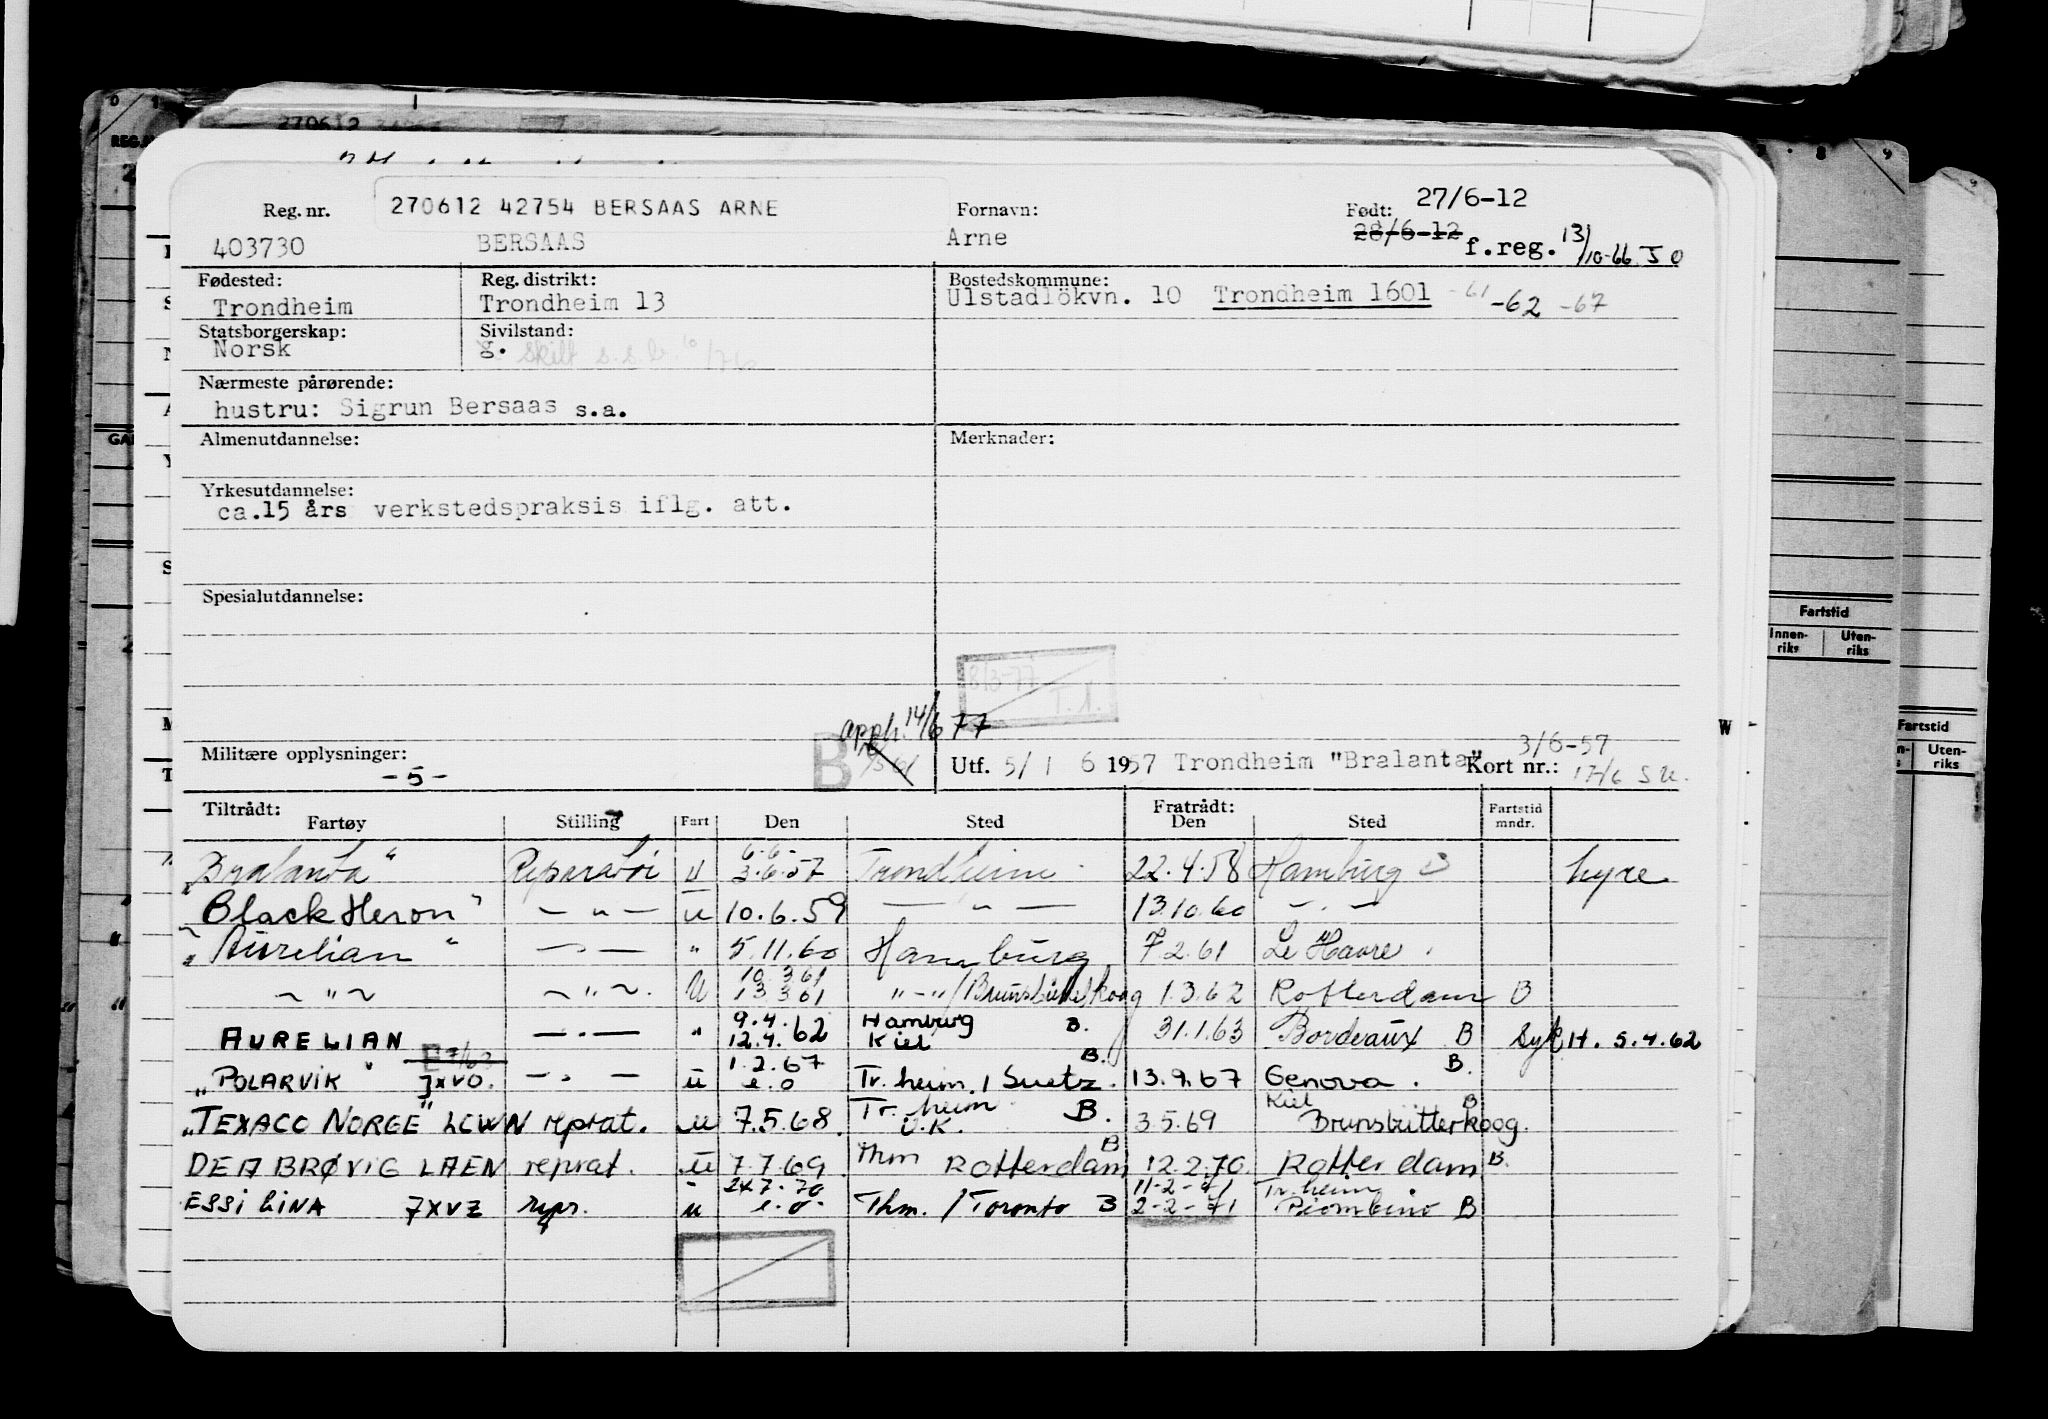 270612
Reg. nr. 270612 42754 BERSAAS ARNE Fornavn: Født: 27/6-12
403730 BERSAAS Arne 28/6-12 f.reg. 13/10-66 J O
Fødested: Reg. distrikt: Bostedskommune:
Trondheim Trondheim 13 Ulstadlökvn. 10 Trondheim 1601 -61 -62 -67
Statsborgerskap: Sivilstand:
Norsk g. Skilt
Nærmeste pårørende:
hustru: Sigrun Bersaas s.a.
Almenutdannelse: Merknader:
Yrkesutdannelse:
ca.15 års verkstedspraksis iflg. att.
Spesialutdannelse:
Fartstid
Innen-riks Uten-riks
8/3-77
T.
Fartstid
Uten-riks
W
opph. 14/6 77
Militære opplysninger: B Utf. 5/1 6 1957 Trondheim "Bralanta" Kort nr.: 3/6-57
-5- 17/6
Tiltrådt: Fratrådt:
Fartøy Stilling Fart Den Sted Den Sted Fartstid mndr.
6.6.
"Bralanta" Reparatör u 3.6.57 Trondheim 22.4.58 Hamburg hyre
Black Heron" — " — u 10.6.59 — " — 13.10.60 — " —
"Aurelian" — " — " 5.11.60 Hamburg 7.2.61 Le Havre
10.3.61
— " — — " — U 13.3.61 " - " / Brunsbüttelkoog 1.3.62 Rotterdam B
9.4. Hamburg B.
AURELIAN — " — " 12.4.62 Kiel 31.1.63 Bordeaux B Syk H. 5.4.62
E 7/63 1.2.67 B. B.
"POLARVIK" JXVO. — " — u e.o Tr.heim / Suetz. 13.9.67 Genova.
Tr.heim B. Kiel B
"TEXACO NORGE" LCWN reprat. u 7.5.68 U.K. 3.5.69 Brunsbütterkoog.
DEA BRØVIG LAEN reprat. u 7.7.69 Thm Rotterdam B 12.2.70 Rotterdam B.
24.7.70 11-2-71 Tr.heim
ESSI LINA 7XVZ repr. u e.o. Thm. / Toronto B 2-2-71 Piombino B